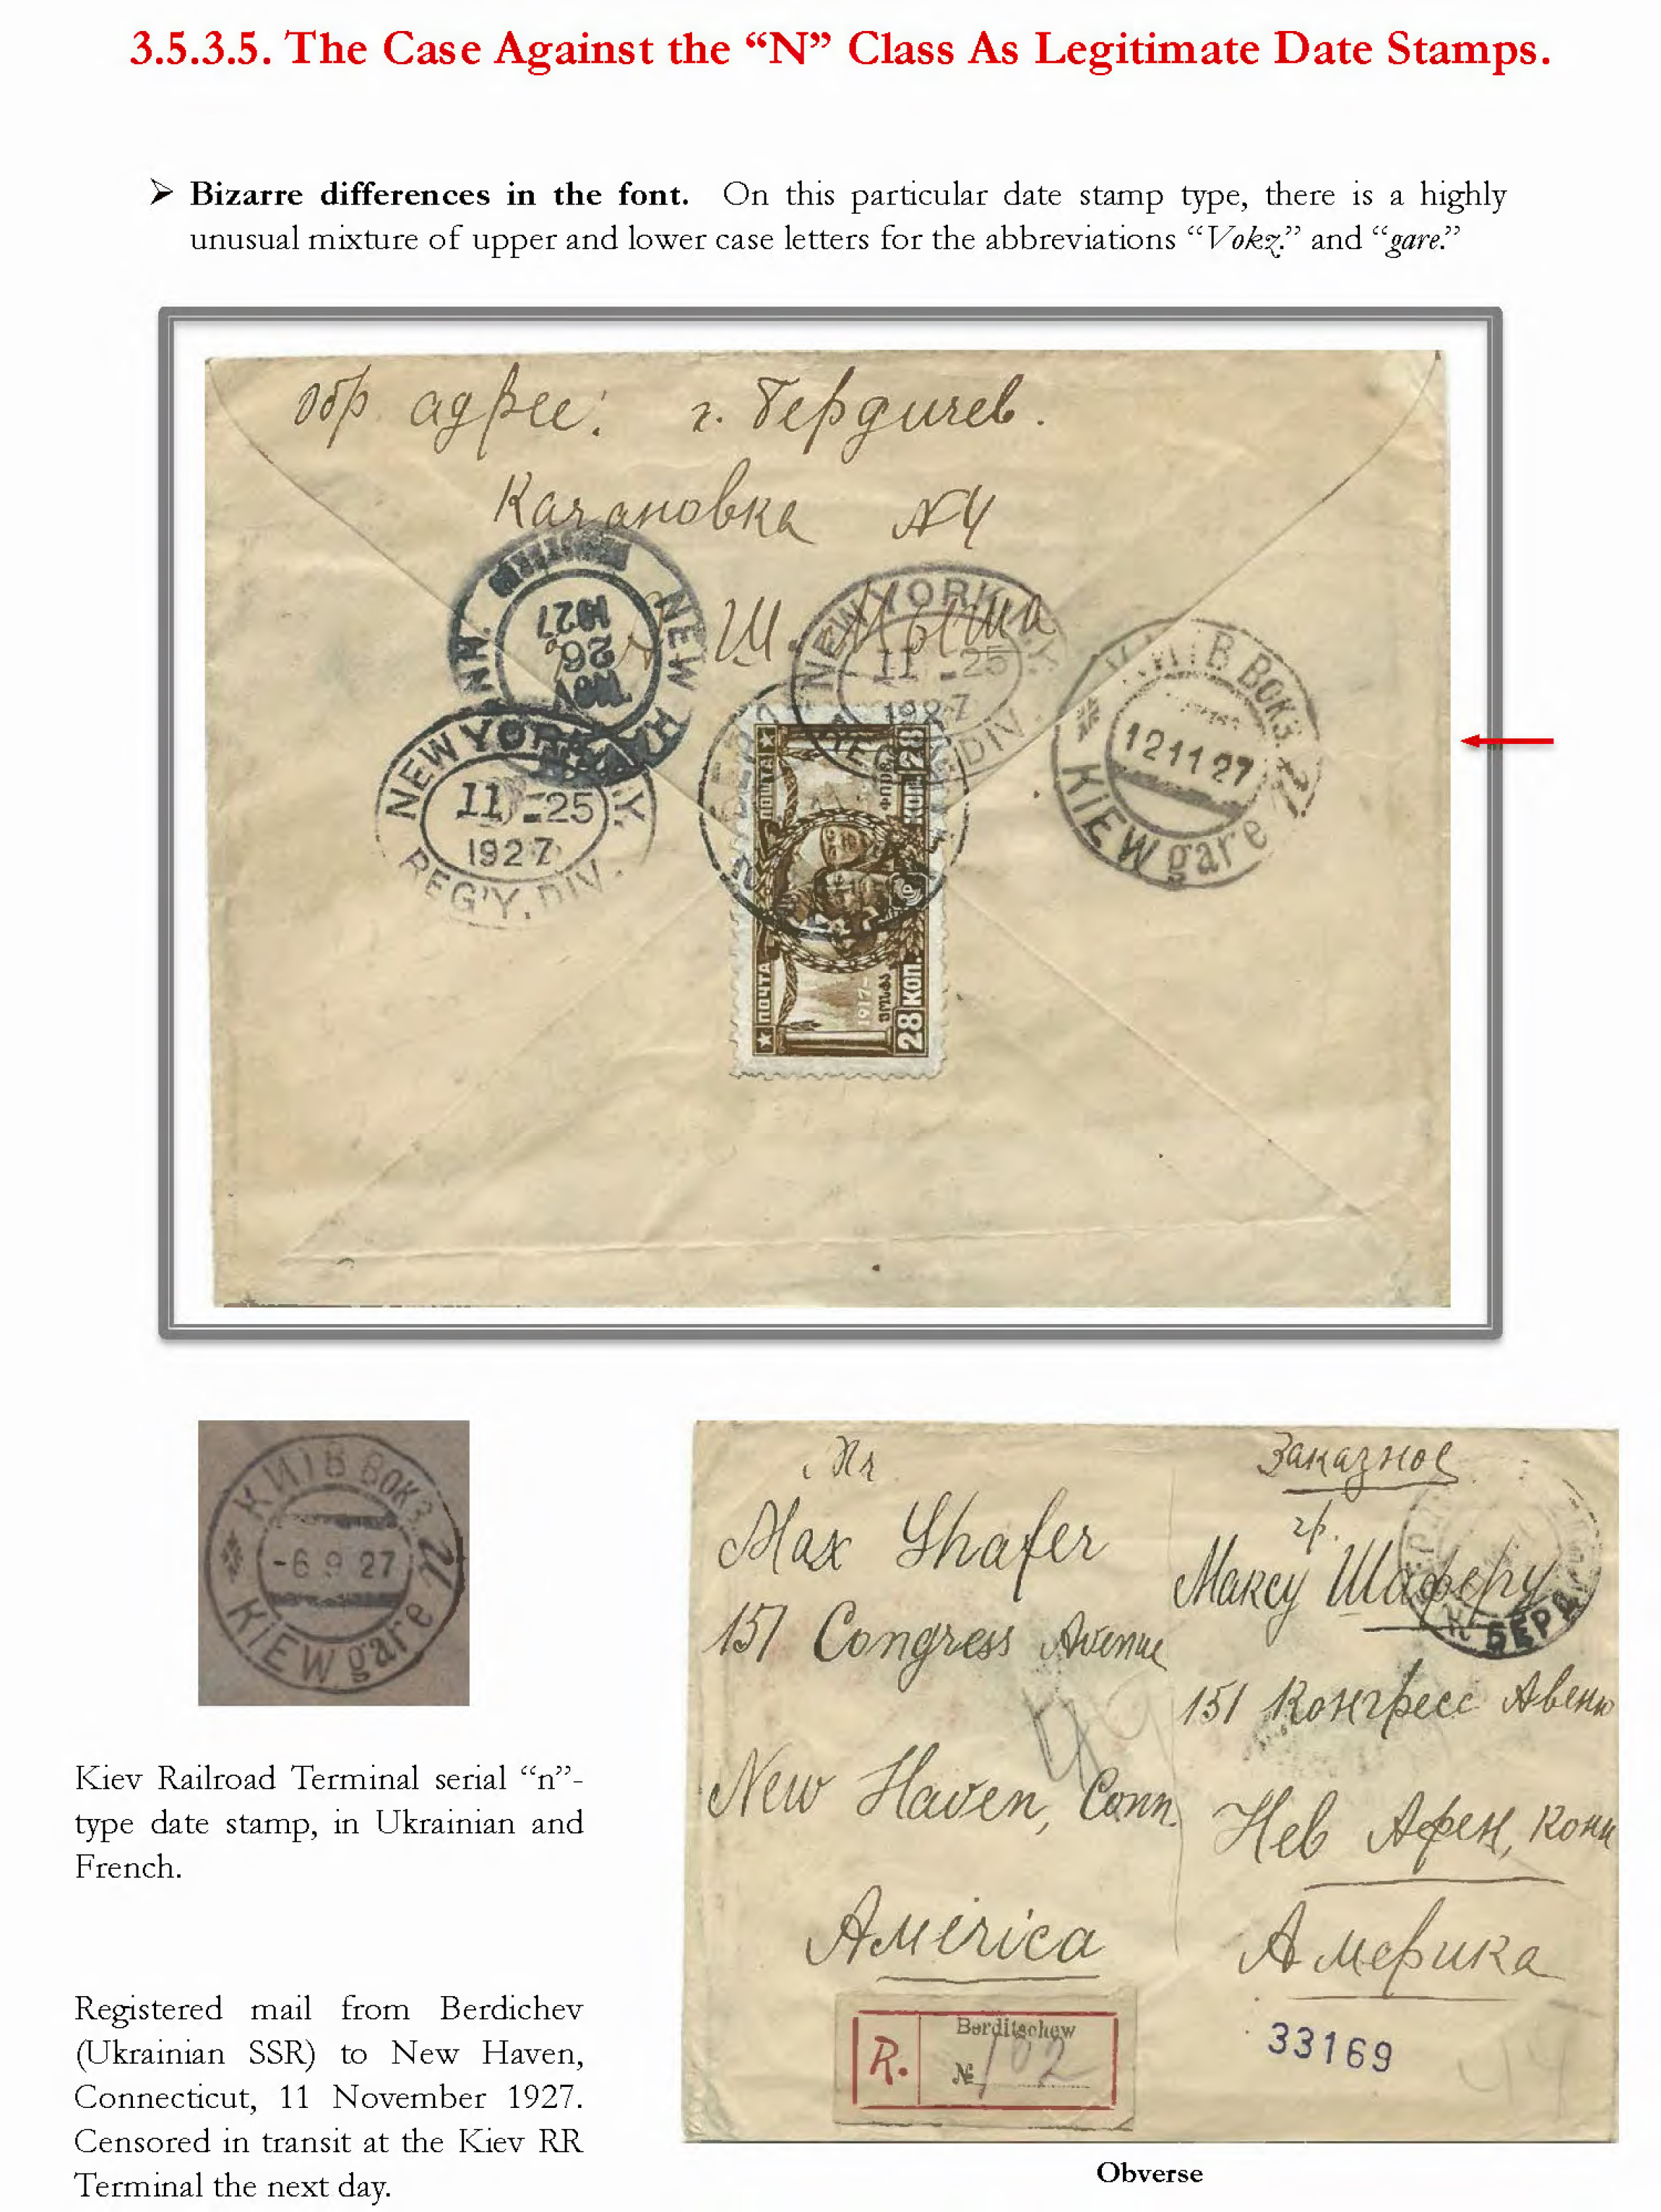 3.5.3.5. The Case Against the “N” Class As Legitimate Date Stamps.
➢ Bizarre differences in the font. On this particular date stamp type, there is a highly
unusual mixture of upper and lower case letters for the abbreviations “Vokz.” and “gare.”
Обр. адрес: г. Бердичев.
Качановка №4
Ш. Мыша
NEW HAVEN CONN.
NOV
26
1927
NEW YORK, N.Y.
11-25
1927
REG'Y. DIV.
NEW YORK, N.Y.
11-25
1927
REG'Y. DIV.
КИЇВ ВОКЗ. n
12 11 27
KIEW gare
ПОШТА
ПОЧТА
1917-
28 КОП.
28 КОП.
КИЇВ ВОКЗ. n
-6 9 27
KIEW gare
Kiev Railroad Terminal serial “n”-
type date stamp, in Ukrainian and
French.
Registered mail from Berdichev
(Ukrainian SSR) to New Haven,
Connecticut, 11 November 1927.
Censored in transit at the Kiev RR
Terminal the next day.
Mr
Max Shafer
151 Congress Avenue
New Haven, Conn.
America
Заказное
гр.
Максу Шаферу
151 Конгресс Авеню
Нев Афен, Конн
Америка
БЕРД
R.
Berditschew
№ 102
33169
Obverse